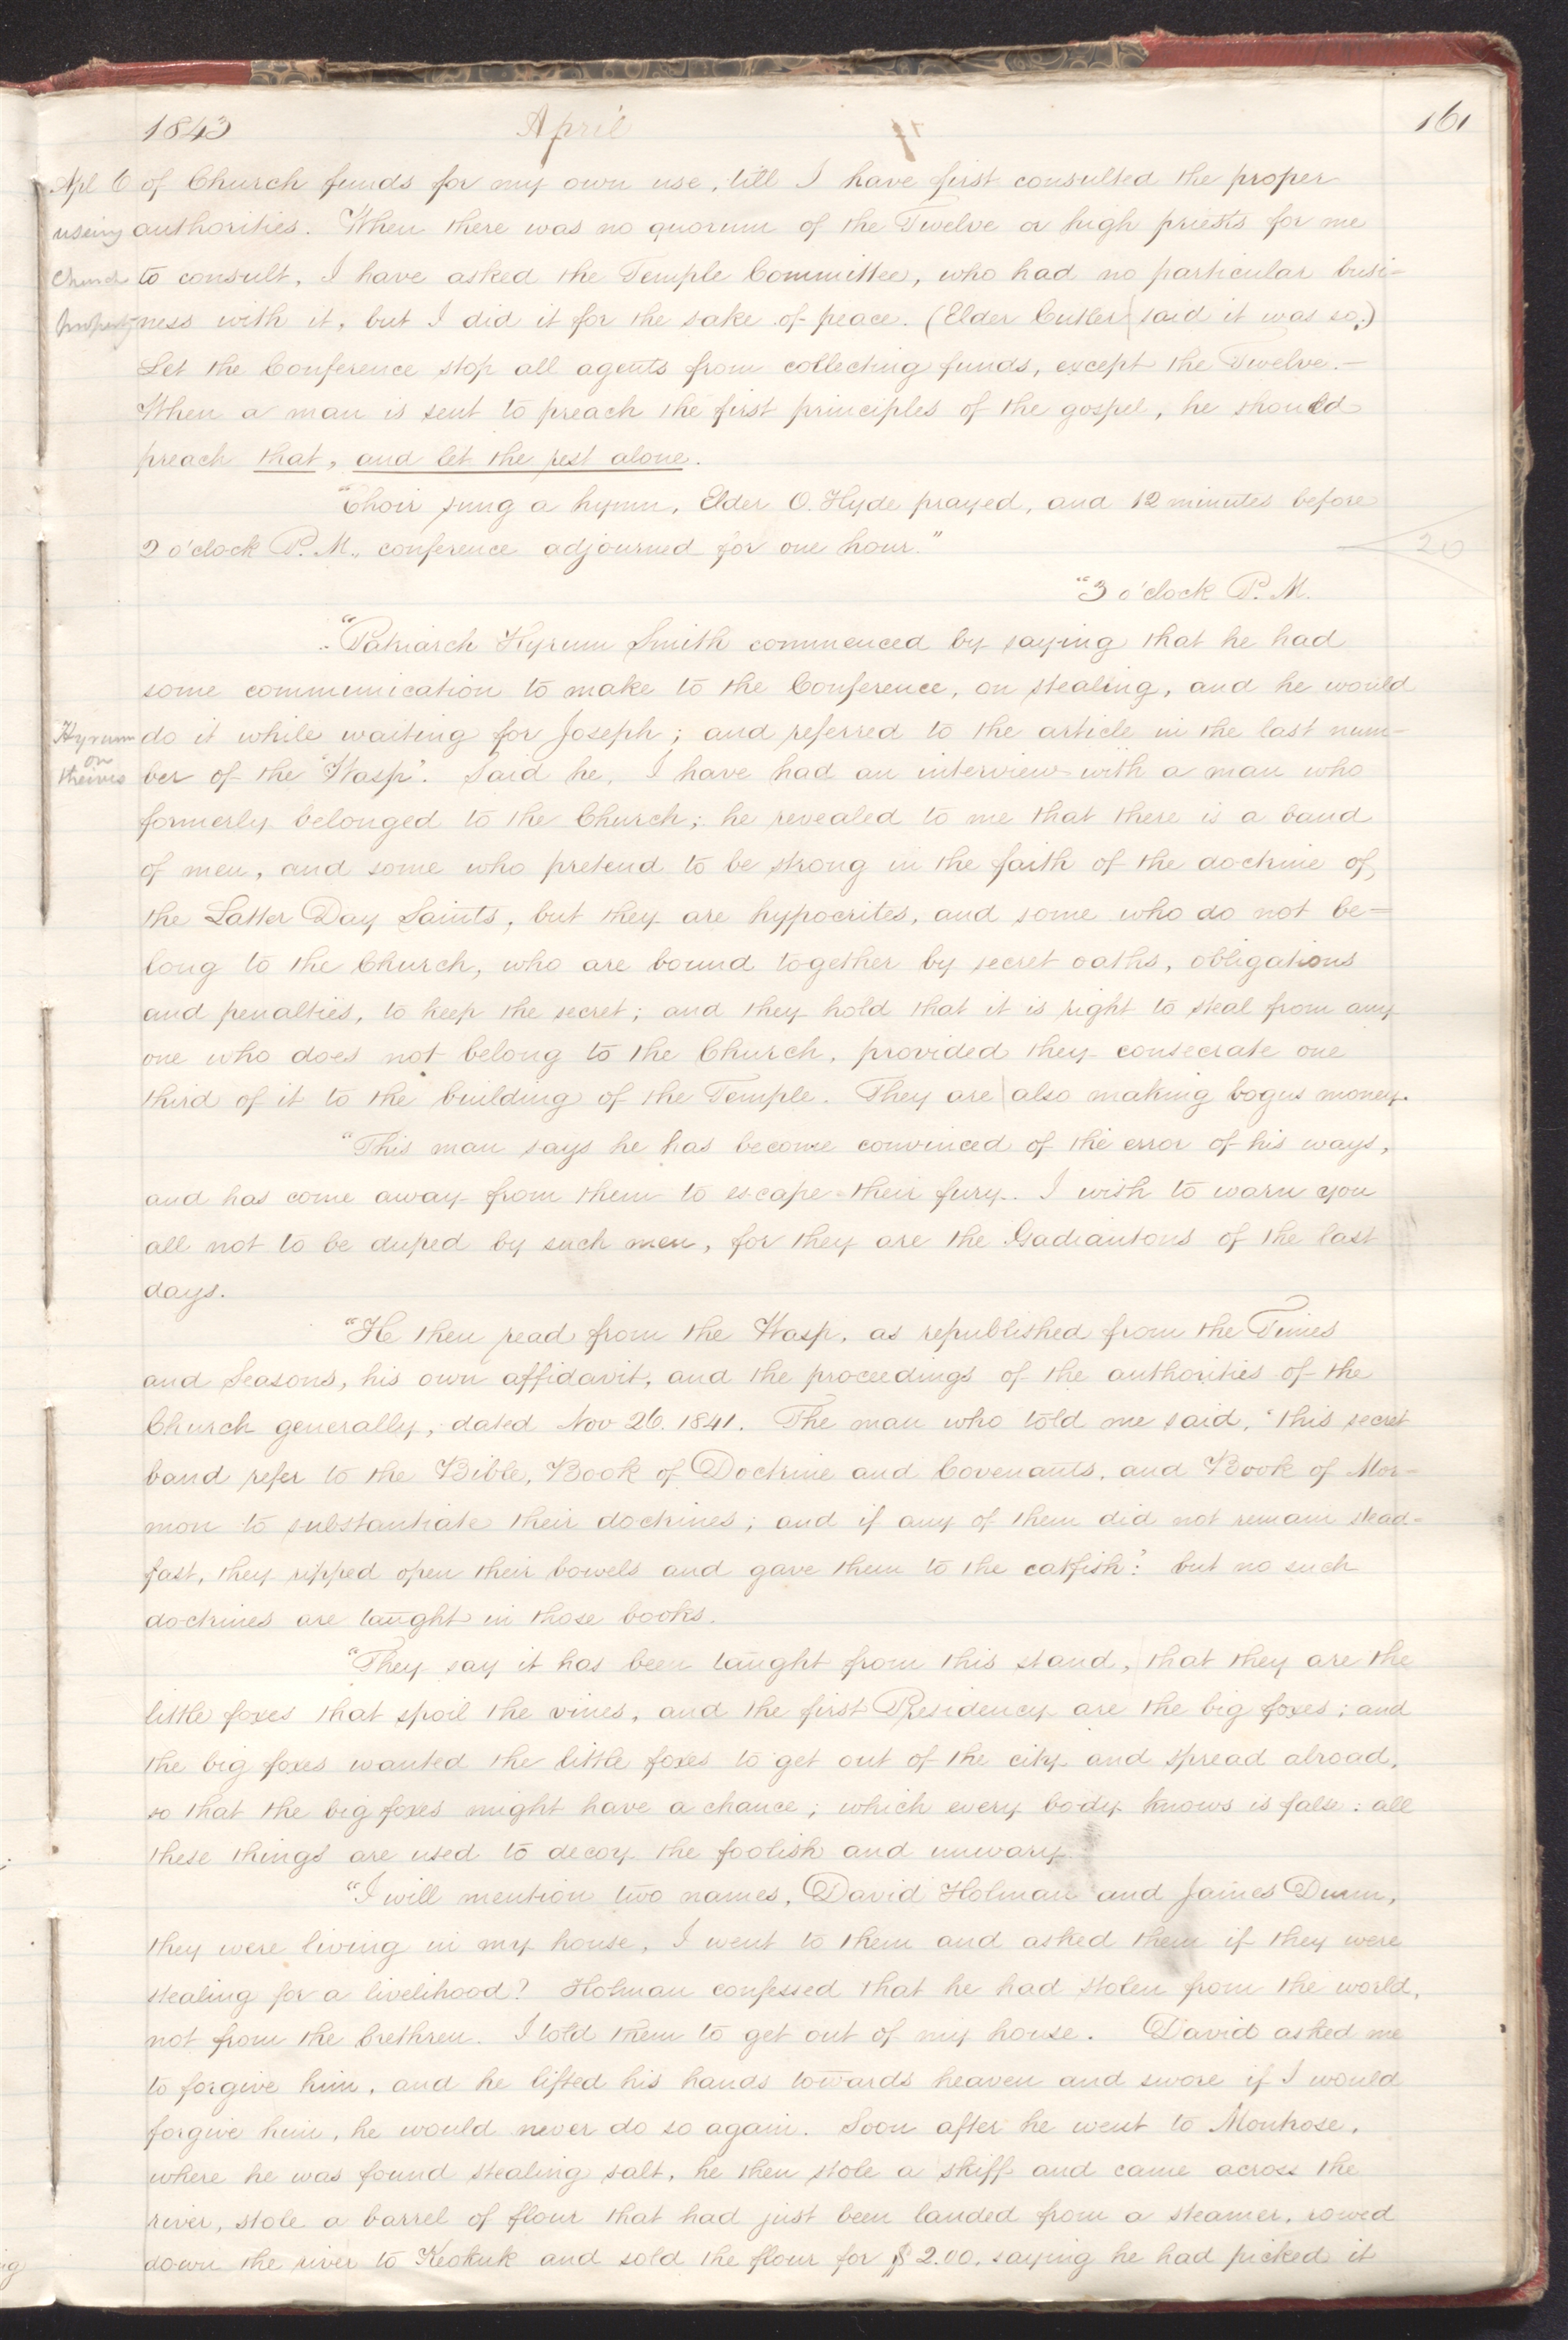 1843 April 161
Apl 6 of Church funds for my own use, till I have first consulted the proper
useing authorities. When there was no quorum of the Twelve or high priests for me
Church to consult, I have asked the Temple Committee, who had no particular busi-
property ness with it, but I did it for the sake of peace. (Elder Cutler said it was so.)
Let the Conference stop all agents from collecting funds, except the Twelve.—
When a man is sent to preach the first principles of the gospel, he should
preach that, and let the rest alone.
"Choir sung a hymn, Elder O. Hyde prayed, and 12 minutes before
2 o'clock P.M., conference adjourned for one hour." 20
"3 o'clock P.M.
"Patriarch Hyrum Smith commenced by saying that he had
some communication to make to the Conference, on stealing, and he would
Hyrum do it while waiting for Joseph; and referred to the article in the last num-
on
theives ber of the "Wasp". Said he, I have had an interview with a man who
formerly belonged to the Church; he revealed to me that there is a band
of men, and some who pretend to be strong in the faith of the doctrine of
the Latter Day Saints, but they are hypocrites, and some who do not be=
long to the Church, who are bound together by secret oaths, obligations
and penalties, to keep the secret; and they hold that it is right to steal from any
one who does not belong to the Church, provided they consecrate one
third of it to the building of the Temple. They are also making bogus money.
"This man says he has become convinced of the error of his ways,
and has come away from them to escape their fury. I wish to warn you
all not to be duped by such men, for they are the Gadiantons of the last
days.
"He then read from the Wasp, as republished from the Times
and Seasons, his own affidavit, and the proceedings of the authorities of the
Church generally, dated Nov 26. 1841. The man who told me said, 'this secret
band refer to the Bible, Book of Doctrine and Covenants, and Book of Mor-
mon to substantiate their doctrines; and if any of them did not remain stead-
fast, they ripped open their bowels and gave them to the catfish:' but no such
doctrines are taught in those books.
"They say it has been taught from this stand, that they are the
little foxes that spoil the vines, and the first Presidency are the big foxes; and
the big foxes wanted the little foxes to get out of the city and spread abroad,
so that the big foxes might have a chance; which every body knows is false: all
these things are used to decoy the foolish and unwary.
"I will mention two names, David Holman and James Dunn,
they were living in my house, I went to them and asked them if they were
stealing for a livelihood? Holman confessed that he had stolen from the world,
not from the brethren. I told them to get out of my house. David asked me
to forgive him, and he lifted his hands towards heaven and swore if I would
forgive him, he would never do so again. Soon after he went to Montrose,
where he was found stealing salt, he then stole a skiff and came across the
river, stole a barrel of flour that had just been landed from a steamer, rowed
down the river to Keokuk and sold the flour for $2.00, saying he had picked it